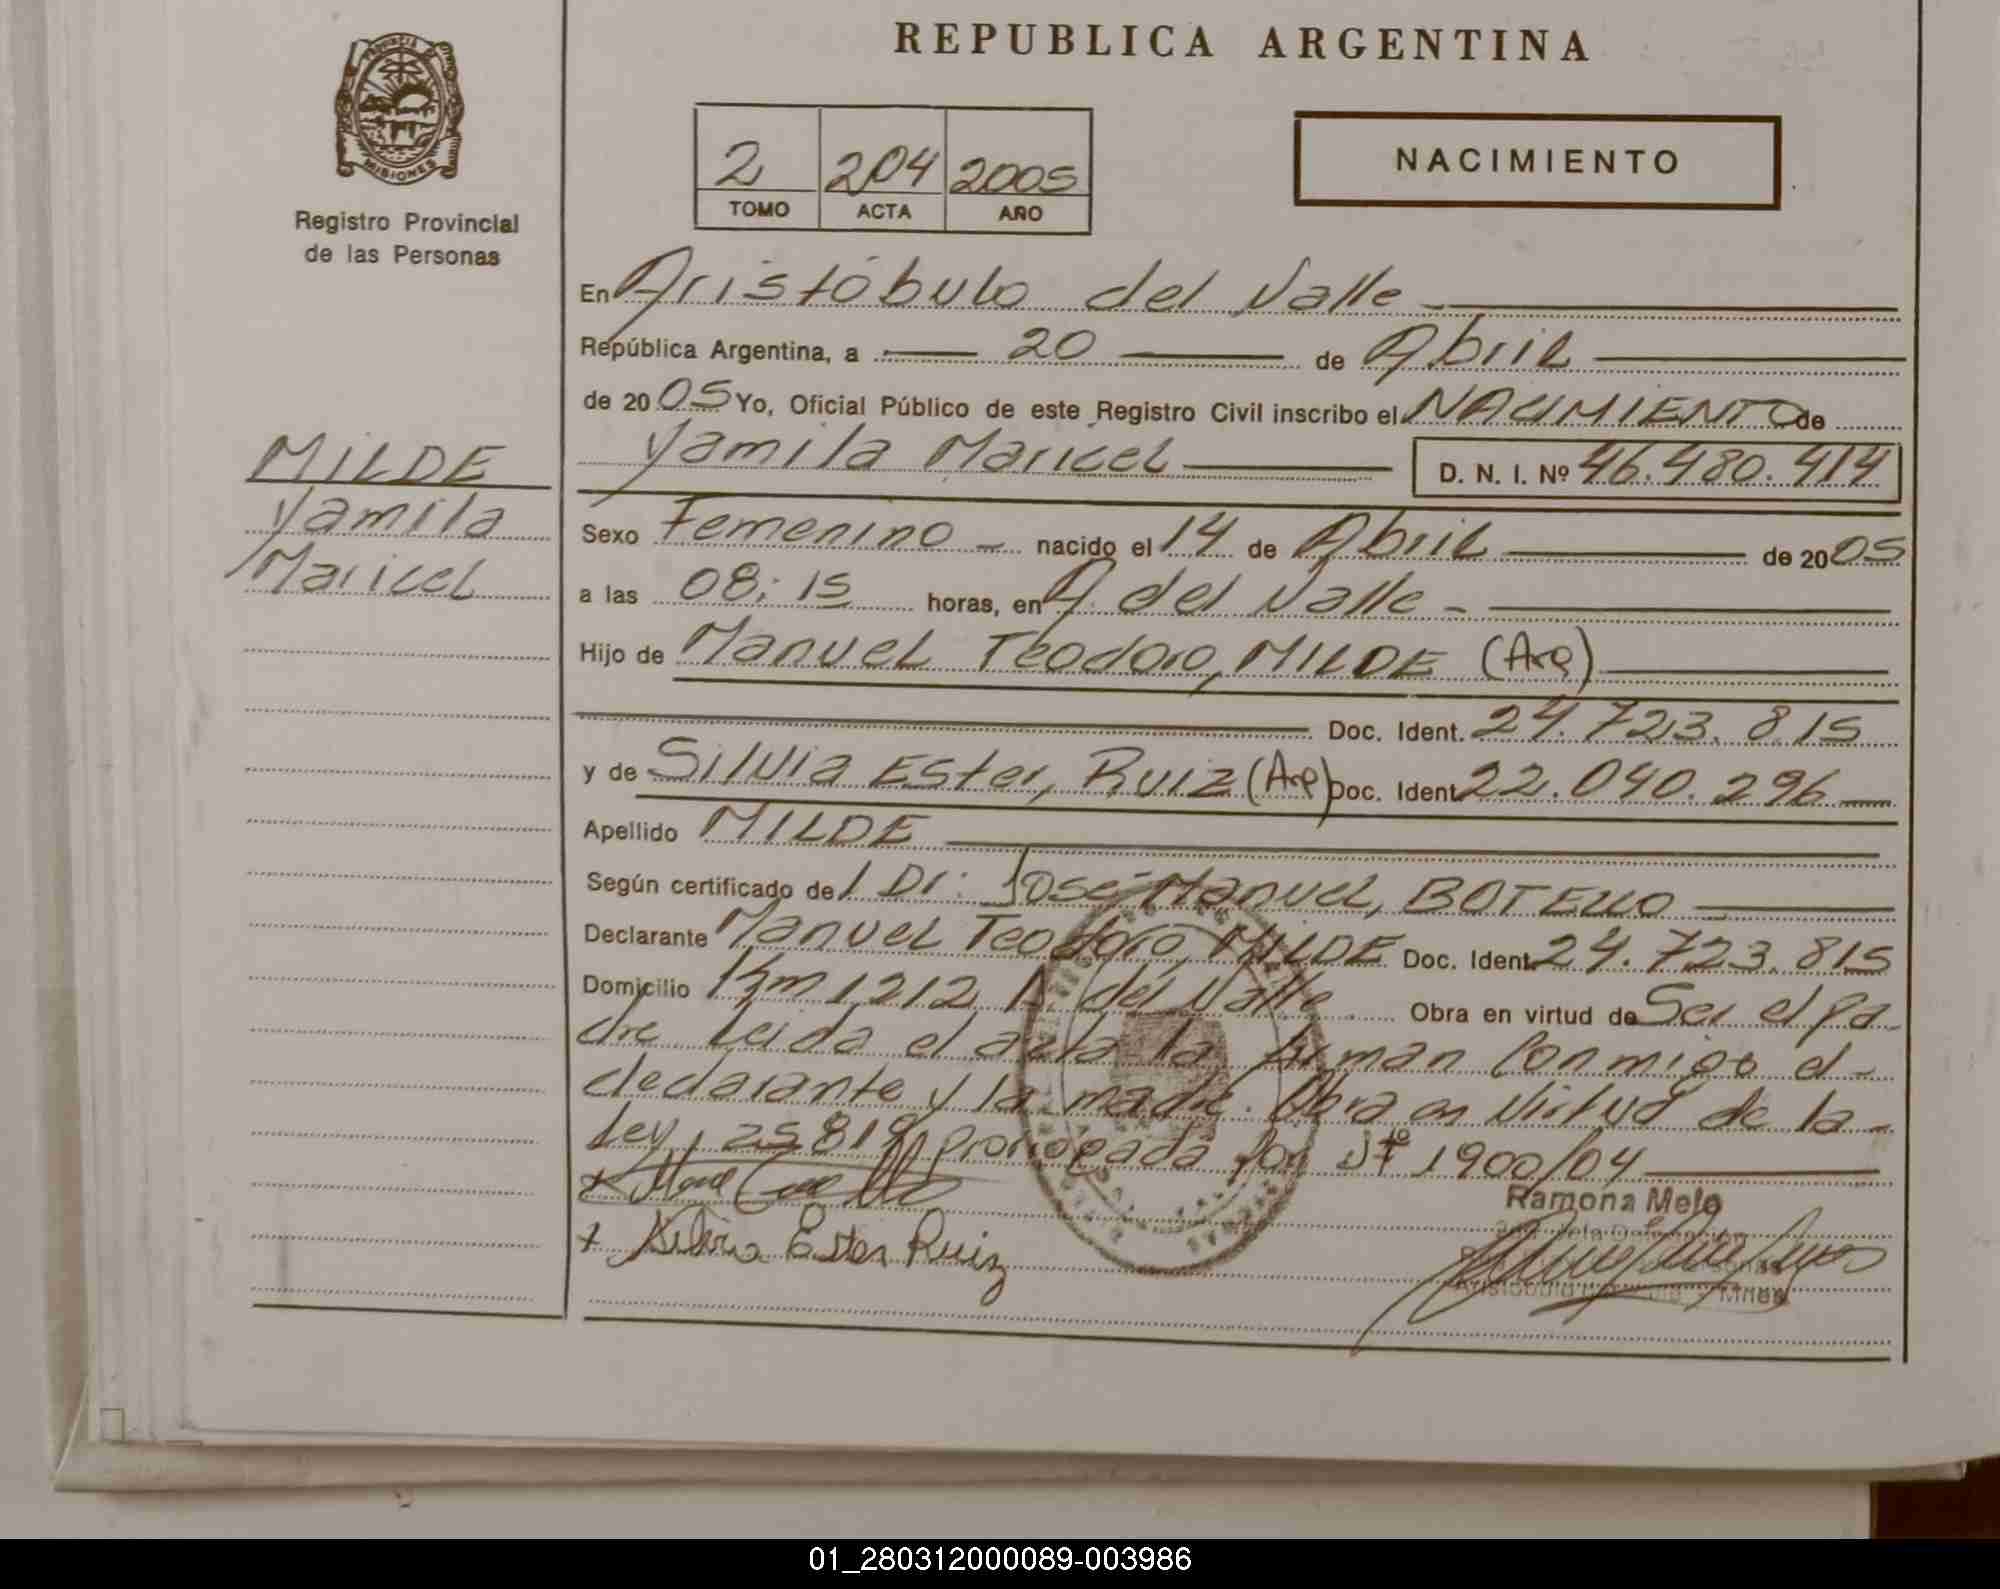 REPUBLICA ARGENTINA
PROVINCIA DE
MISIONES
Registro Provincial
de las Personas
2 204 2005
TOMO ACTA AÑO
NACIMIENTO
En Aristóbulo del Valle
República Argentina, a 20 de Abril
de 2005 Yo, Oficial Público de este Registro Civil inscribo el NACIMIENTO de
Yamila Maricel D. N. I. Nº 46.480.414
MILDE
Yamila
Maricel
Sexo Femenino - nacido el 14 de Abril de 2005
a las 08:15 horas, en A. del Valle -
Hijo de Manuel Teodoro, MILDE (Arg)
Doc. Ident. 24.723.815
y de Silvia Ester, Ruiz (Arg) Doc. Ident. 22.040.296
Apellido MILDE
Según certificado del Dr: José Manuel, BOTELLO
Declarante Manuel Teodoro, MILDE Doc. Ident. 24.723.815
Domicilio Km 1212 A. del Valle Obra en virtud de Ser el pa-
dre leida el acta la firman conmigo el -
declarante y la madre. Obra en virtud de la -
Ley, 25819, prorrogada por 1900/04
x
x Silvia Ester Ruiz
Ramona Melo
01_280312000089-003986